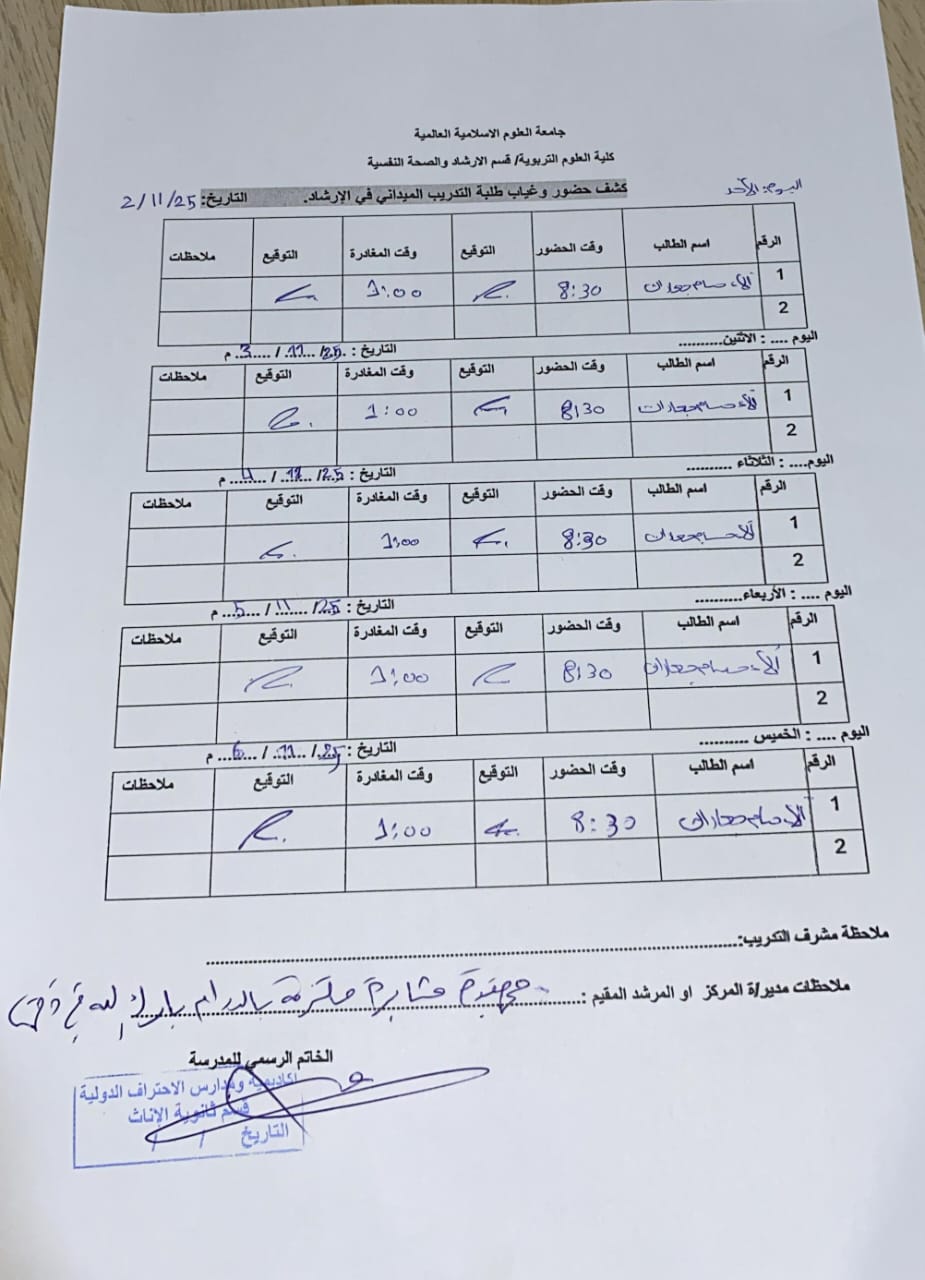 جامعة العلوم الاسلامية العالمية
كلية العلوم التربوية/ قسم الارشاد والصحة النفسية
اليوم: الأحد
كشف حضور وغياب طلبة التدريب الميداني في الإرشاد. التاريخ: 2/11/25
الرقم اسم الطالب وقت الحضور التوقيع وقت المغادرة التوقيع ملاحظات
1 آلاء حسام 8:30 1:00
2
اليوم .... : الاثنين.......... التاريخ : 25/ 11 / 3 م
الرقم اسم الطالب وقت الحضور التوقيع وقت المغادرة التوقيع ملاحظات
1 آلاء حسام 8:30 1:00
2
اليوم.... : الثلاثاء .......... التاريخ : 25/ 11 / 4 م
الرقم اسم الطالب وقت الحضور التوقيع وقت المغادرة التوقيع ملاحظات
1 آلاء حسام 8:30 1:00
2
اليوم .... : الأربعاء.......... التاريخ : 25/ 11 / 5 م
الرقم اسم الطالب وقت الحضور التوقيع وقت المغادرة التوقيع ملاحظات
1 آلاء حسام 8:30 1:00
2
اليوم .... : الخميس .......... التاريخ : 25/ 11 / 6 م
الرقم اسم الطالب وقت الحضور التوقيع وقت المغادرة التوقيع ملاحظات
1 آلاء حسام 8:30 1:00
2
ملاحظة مشرف التدريب:
ملاحظات مدير/ة المركز او المرشد المقيم : مجتهدة مثابرة ملتزمة بالدوام بارك الله في
الخاتم الرسمي للمدرسة
اكاديمية ومدارس الاحتراف الدولية
قسم ثانوية الإناث
التاريخ / /